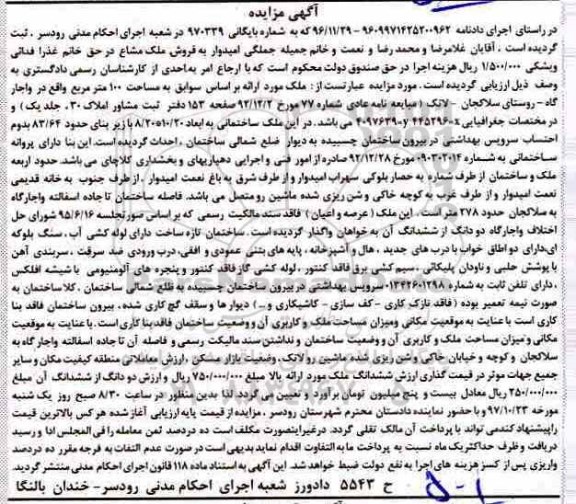 آگهی مزایده
در راستای اجرای دادنامه ۹۶۰۹۹۷۱۴۲۵۲۰۰۹۶۲ - ۹۶/۱۱/۲۹ که به شماره بایگانی ۹۷۰۳۳۹ در شعبه اجرای احکام مدنی رودسر ، ثبت
گردیده است ، آقایان غلامرضا و محمد رضا و نعمت و خانم جمیله جملگی امیدوار به فروش ملک مشاع در حق خانم عذرا فدائی
ویشکی ۱/۵۰۰/۰۰۰ ریال هزینه اجرا در حق صندوق دولت محکوم است که با ارجاع امر به احدی از کارشناسان رسمی دادگستری به
وصف ذیل ارزیابی گردیده است . مورد مزایده عبارتست از : ملک مورد ارائه بر اساس سوابق به مساحت ۱۰۰ متر مربع واقع در واجار
گاه - روستای سلاکجان - لاتک ( مبایعه نامه عادی شماره ۷۷ مورخ ۹۲/۱۲/۲ صفحه ۱۵۳ دفتر ثبت مشاور املاک ۳۰ ، جلد یک ) و
در مختصات جغرافیایی ۴۴۵۲۹۶۰x و ۴۰۹۷۶۳۹۰y می باشد. در این ملک ساختمانی به ابعاد ۱۰/۲۰×۸/۲۰ با زیر بنای حدود ۸۳/۶۴ بدوم
احتساب سرویس بهداشتی در بیرون ساختمان چسبیده به دیوار ضلع شمالی ساختمان ، احداث گردیده است. این بنا دارای پروانه
ساختمانی به شماره ۰۹۰۳۰۲۰۱۴ مورخ ۹۲/۱۲/۲۸ صادره از امور فنی و اجرایی دهیاریهای و بخشداری کلاچای می باشد. حدود اربعه
ملک و ساختمان از طرف شمال به حصار بلوکی سهراب امیدوار و از طرف شرق به باغ نعمت امیدوار ، از طرف جنوب به خانه قدیمی
نعمت امیدوار و از طرف غرب به کوچه خاکی و شن ریزی شده ماشین رو متصل می باشد. فاصله ساختمان تا جاده اسفالته واجارگاه
به سلاکجان حدود ۲۷۸ متر است . این ملک ( عرصه و اعیان ) فاقد سند مالکیت رسمی که بر اساس صورتجلسه ۹۵/۶/۱۶ شورای حل
اختلاف واجارگاه دو دانگ از ششدانگ آن به خواهان واگذار گردیده است. ساختمان تازه ساخت دارای لوله کشی آب ، سنگ بلوکه
ای،دارای دو اطاق خواب با درب های جدید ، هال و آشپزخانه ، پایه های بتنی عمودی و افقی، درب ورودی ضد سرقت ، سربندی آهن
با پوشش حلبی و ناودان پلیکائی ، سیم کشی برق فاقد کنتور ، لوله کشی گاز فاقد کنتور و پنجره های آلومنیومی با شیشه افلکس
، دارای تلفن ثابت به شماره ۰۱۳۴۲۶۰۱۲۹۸ سرویس بهداشتی در بیرون ساختمان چسبیده به ظلع شمالی ساختمان . کلا ساختمان به
صورت نیمه تعمیر بوده ( فاقد نازک کاری - کف سازی - کاشیکاری و ... ) دیوار ها و سقف گچ کاری شده ، بیرون ساختمان فاقد بنا
کاری است با عنایت به موقعیت مکانی ومیزان مساحت ملک و کاربری آن و وضعیت ساختمان فاقد بنا کاری است. با عنایت به موقعیت
مکانی و میزان مساحت ملک و کاربری آن و وضعیت ساختمان و نداشتن سند مالکیت رسمی و فاصله آن تا جاده اسفالته واجارگاه به
سلاکجان و کوچه و خیابان خاکی و شن ریزی شده ماشین رو لاتک، وضعیت بازار مسکن ، ارزش معاملاتی منطقه کیفیت مکان و سایر
جمیع جهات موثر در قیمت گذاری ارزش ششدانگ ملک مورد ارائه بالا مبلغ ۷۵۰/۰۰۰/۰۰۰ ریال و ارزش دو دانگ از ششدانگ آن مبلغ
۲۵۰/۰۰۰/۰۰۰ ریال معادل بیست و پنج میلیون تومان برآورد و تعیین می گردد. لذا بدین منظور در ساعت ۸/۳۰ صبح روز یک شنبه
مورخه ۹۷/۱۰/۲۳ و با حضور نماینده دادستان محترم شهرستان رودسر ، مزایده از قیمت پایه ارزیابی آغاز شده هر کس بالاترین قیمت
را پیشنهاد کندمی تواند با پرداخت آن مالک تلقی گردد. درغیراینصورت مکلف است ده درصد ثمن معامله را فی المجلس ادا و رسید
دریافت و ظرف حداکثر یک ماه نسبت به پرداخت ما به التفاوت اقدام نماید بدیهی است در صورت عدم التفات به فرجه مقرر ده درصد
واریزی پس از کسر هزینه های اجرا به نفع دولت ضبط خواهد شد. این آگهی به استناد ماده ۱۱۸ قانون اجرای احکام مدنی منتشر گردید.
ح ۵۵۴۳ دادورز شعبه اجرای احکام مدنی رودسر - خندان بالنگا